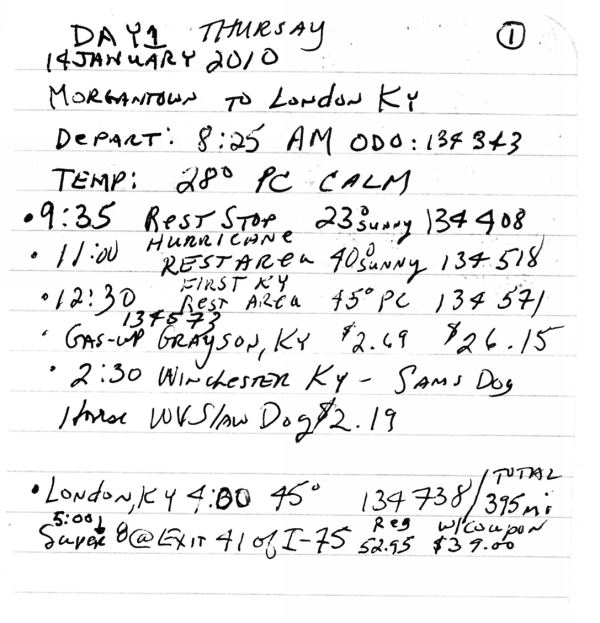 DAY1 THURSAY ①
14 JANUARY 2010
MORGANTOWN TO LONDON KY
DEPART: 8:25 AM ODO: 134343
TEMP: 28° PC CALM
• 9:35 REST STOP 23° SUNNY 134408
• 11:00 HURRICANE REST AREA 40° SUNNY 134518
• 12:30 FIRST KY REST AREA 45° PC 134571
134573
• GAS-UP GRAYSON, KY $2.69 $26.15
• 2:30 WINCHESTER KY - SAMS DOG
House WV Slaw Dog $2.19
• LONDON, KY 4:00 45° 134738/395mi TOTAL
5:00↓ Reg w/coupon
Super 8 @ EXIT 41 of I-75 52.95 $39.00